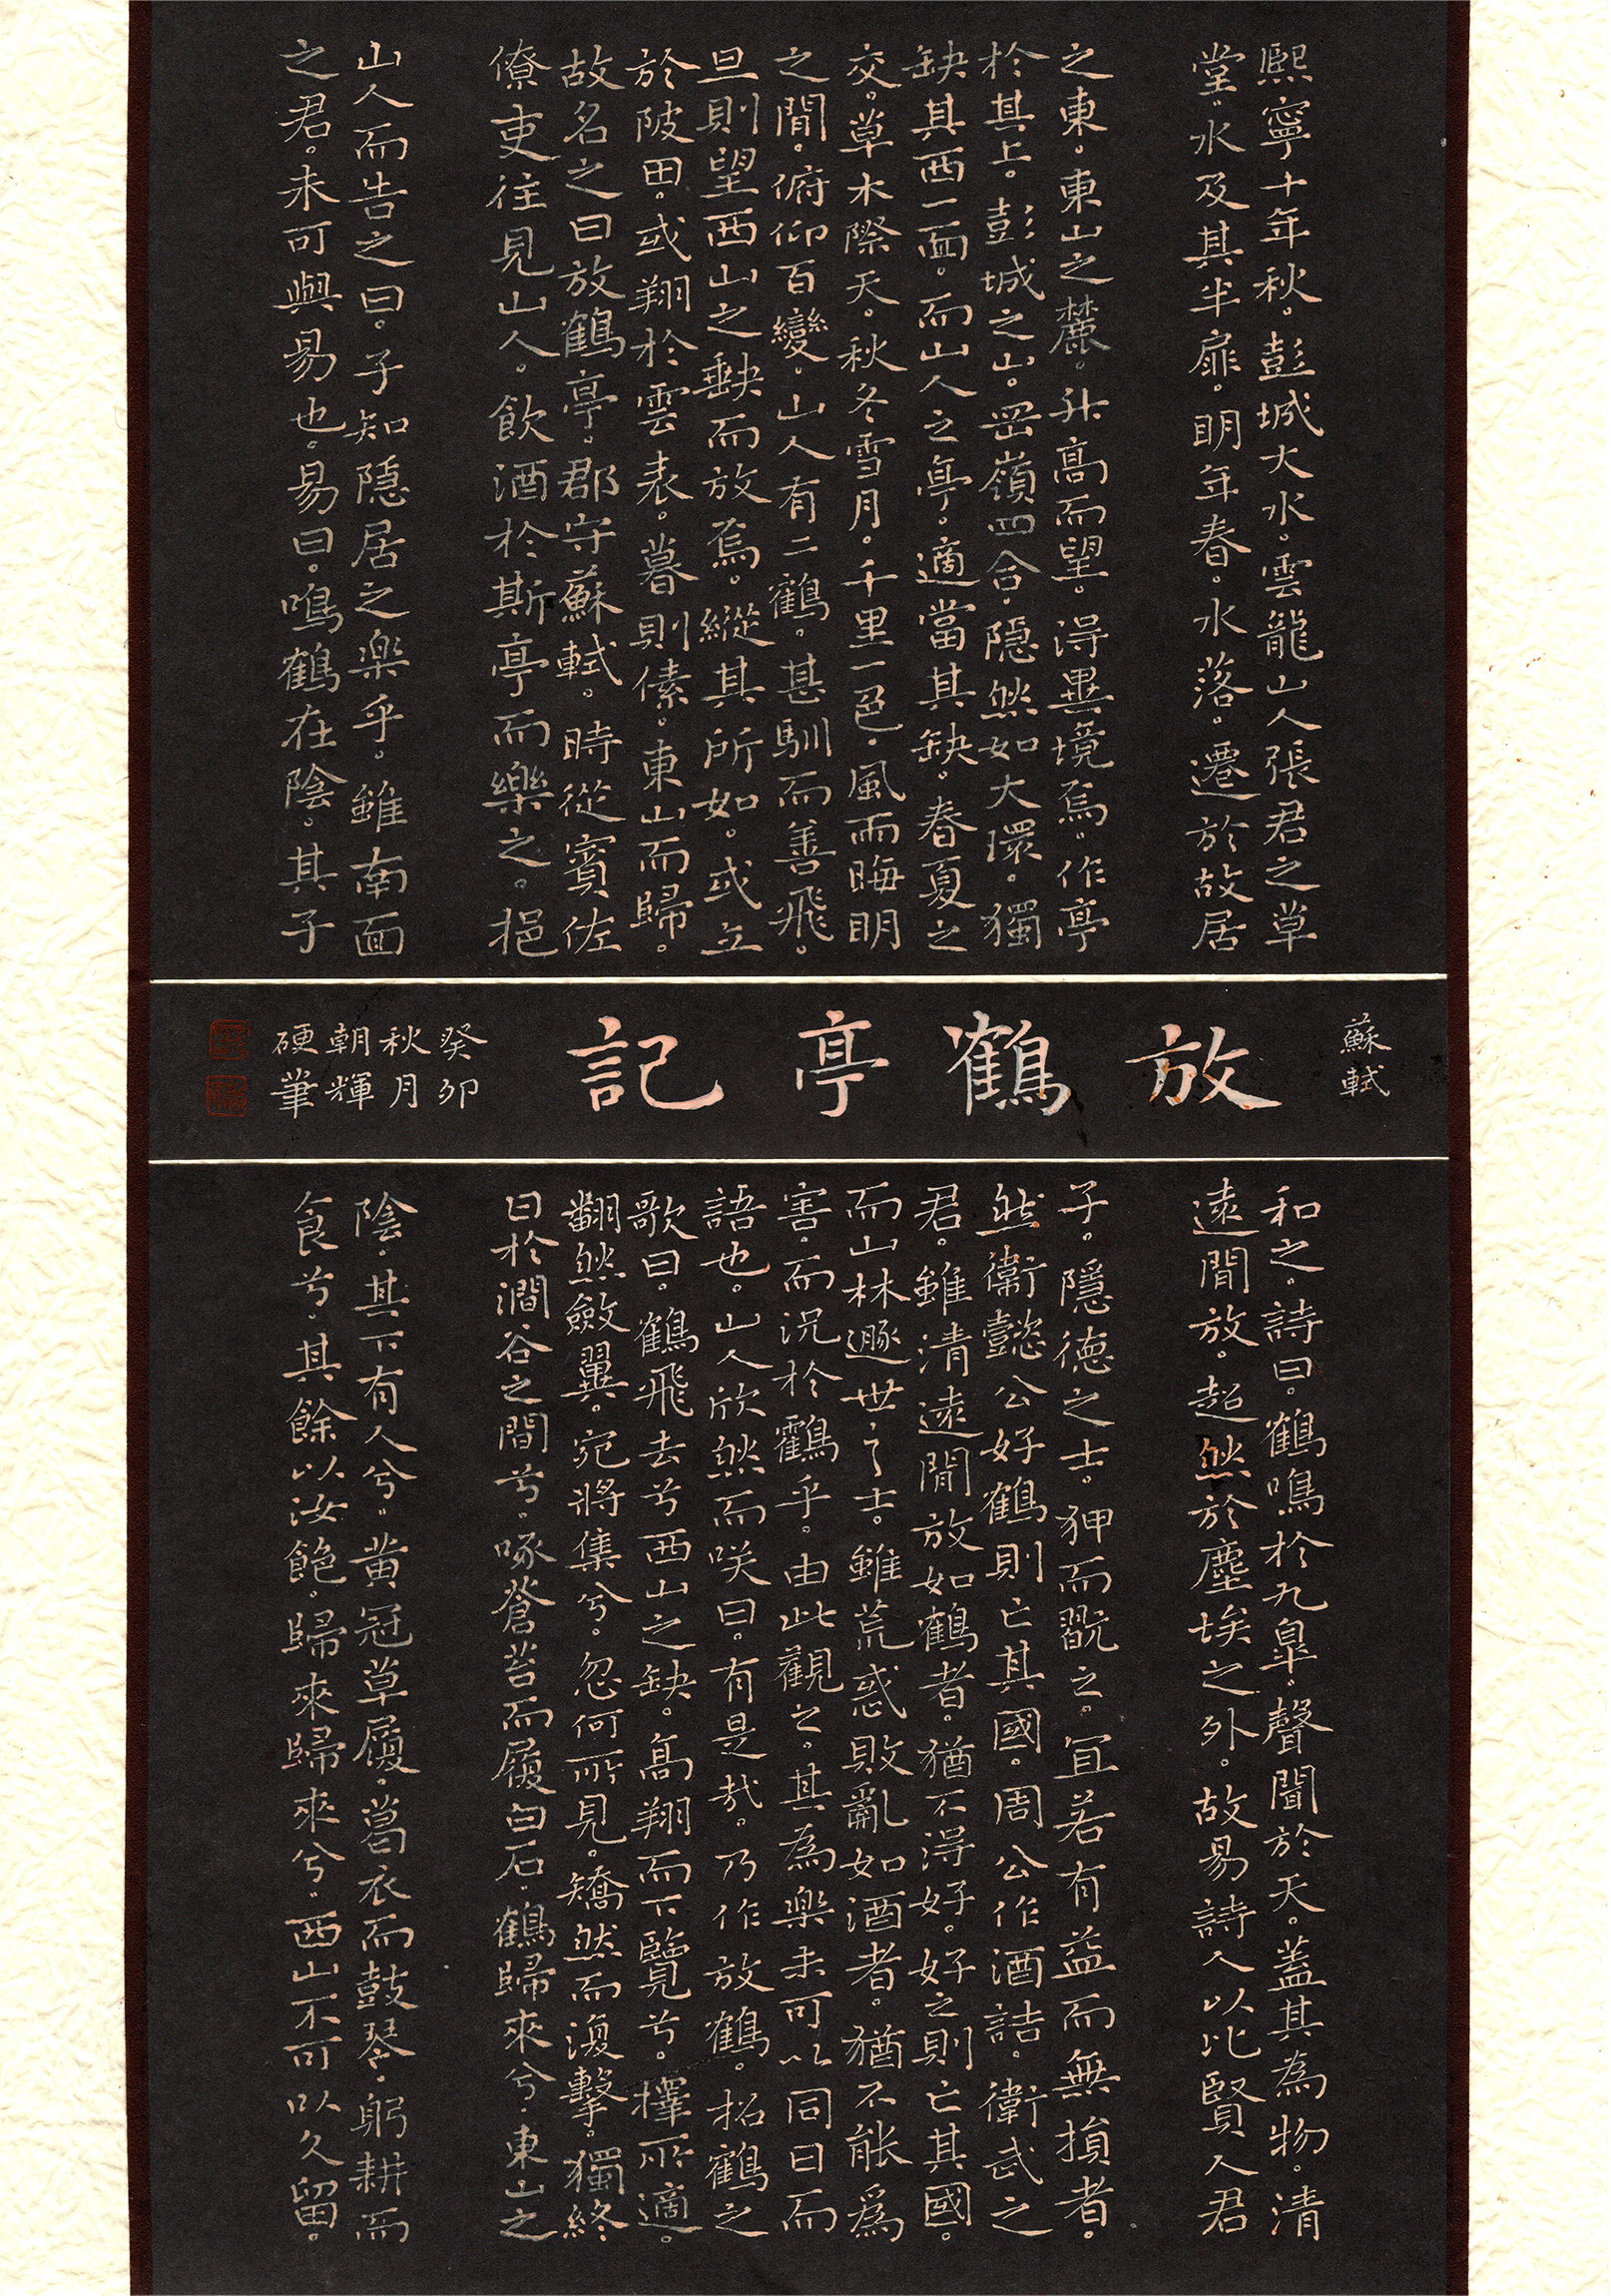 熙寧十年秋。彭城大水。雲龍山人張君之草
堂。水及其半扉。明年春。水落。遷於故居
之東。東山之麓。升高而望。得異境焉。作亭
於其上。彭城之山。岡嶺四合。隱然如大環。獨
缺其西一面。而山人之亭。適當其缺。春夏之
交。草木際天。秋冬雪月。千里一色。風雨晦明
之間。俯仰百變。山人有二鶴。甚馴而善飛。
旦則望西山之缺而放焉。縱其所如。或立
於陂田。或翔於雲表。暮則傃。東山而歸。
故名之曰放鶴亭。郡守蘇軾。時從賓佐
僚吏往見山人。飲酒於斯亭而樂之。挹
山人而告之曰。子知隱居之楽乎。雖南面
之君。未可與易也。易曰。鳴鶴在陰。其子
蘇軾
放鶴亭記
癸卯
秋月
朝輝
硬筆
和之。詩曰。鶴鳴於九皋。聲聞於天。蓋其為物。清
遠閒放。超然於塵埃之外。故易詩人以比賢人君
子。隱德之士。狎而翫之。宜若有益而無損者。
然衛懿公好鶴則亡其國。周公作酒誥。衛武之
君。雖清遠閒放如鶴者。猶不得好。好之則亡其國。
而山林遯世之士。雖荒惑敗亂如酒者。猶不能為
害。而況於鶴乎。由此觀之。其為楽未可以同日而
語也。山人欣然而咲曰。有是哉。乃作放鶴。招鶴之
歌曰。鶴飛去兮西山之缺。高翔而下覽兮。擇所適。
翻然斂翼。宛將集兮。忽何所見。矯然而復擊。獨終
日於澗谷之間兮。啄蒼苔而履白石。鶴歸來兮。東山之
陰。其下有人兮。黄冠草履。葛衣而鼓琴。躬耕而
食兮。其餘以汝飽。歸來歸來兮。西山不可以久留。